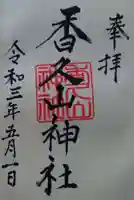 奉拝
香久山神社
令和三年五月一日